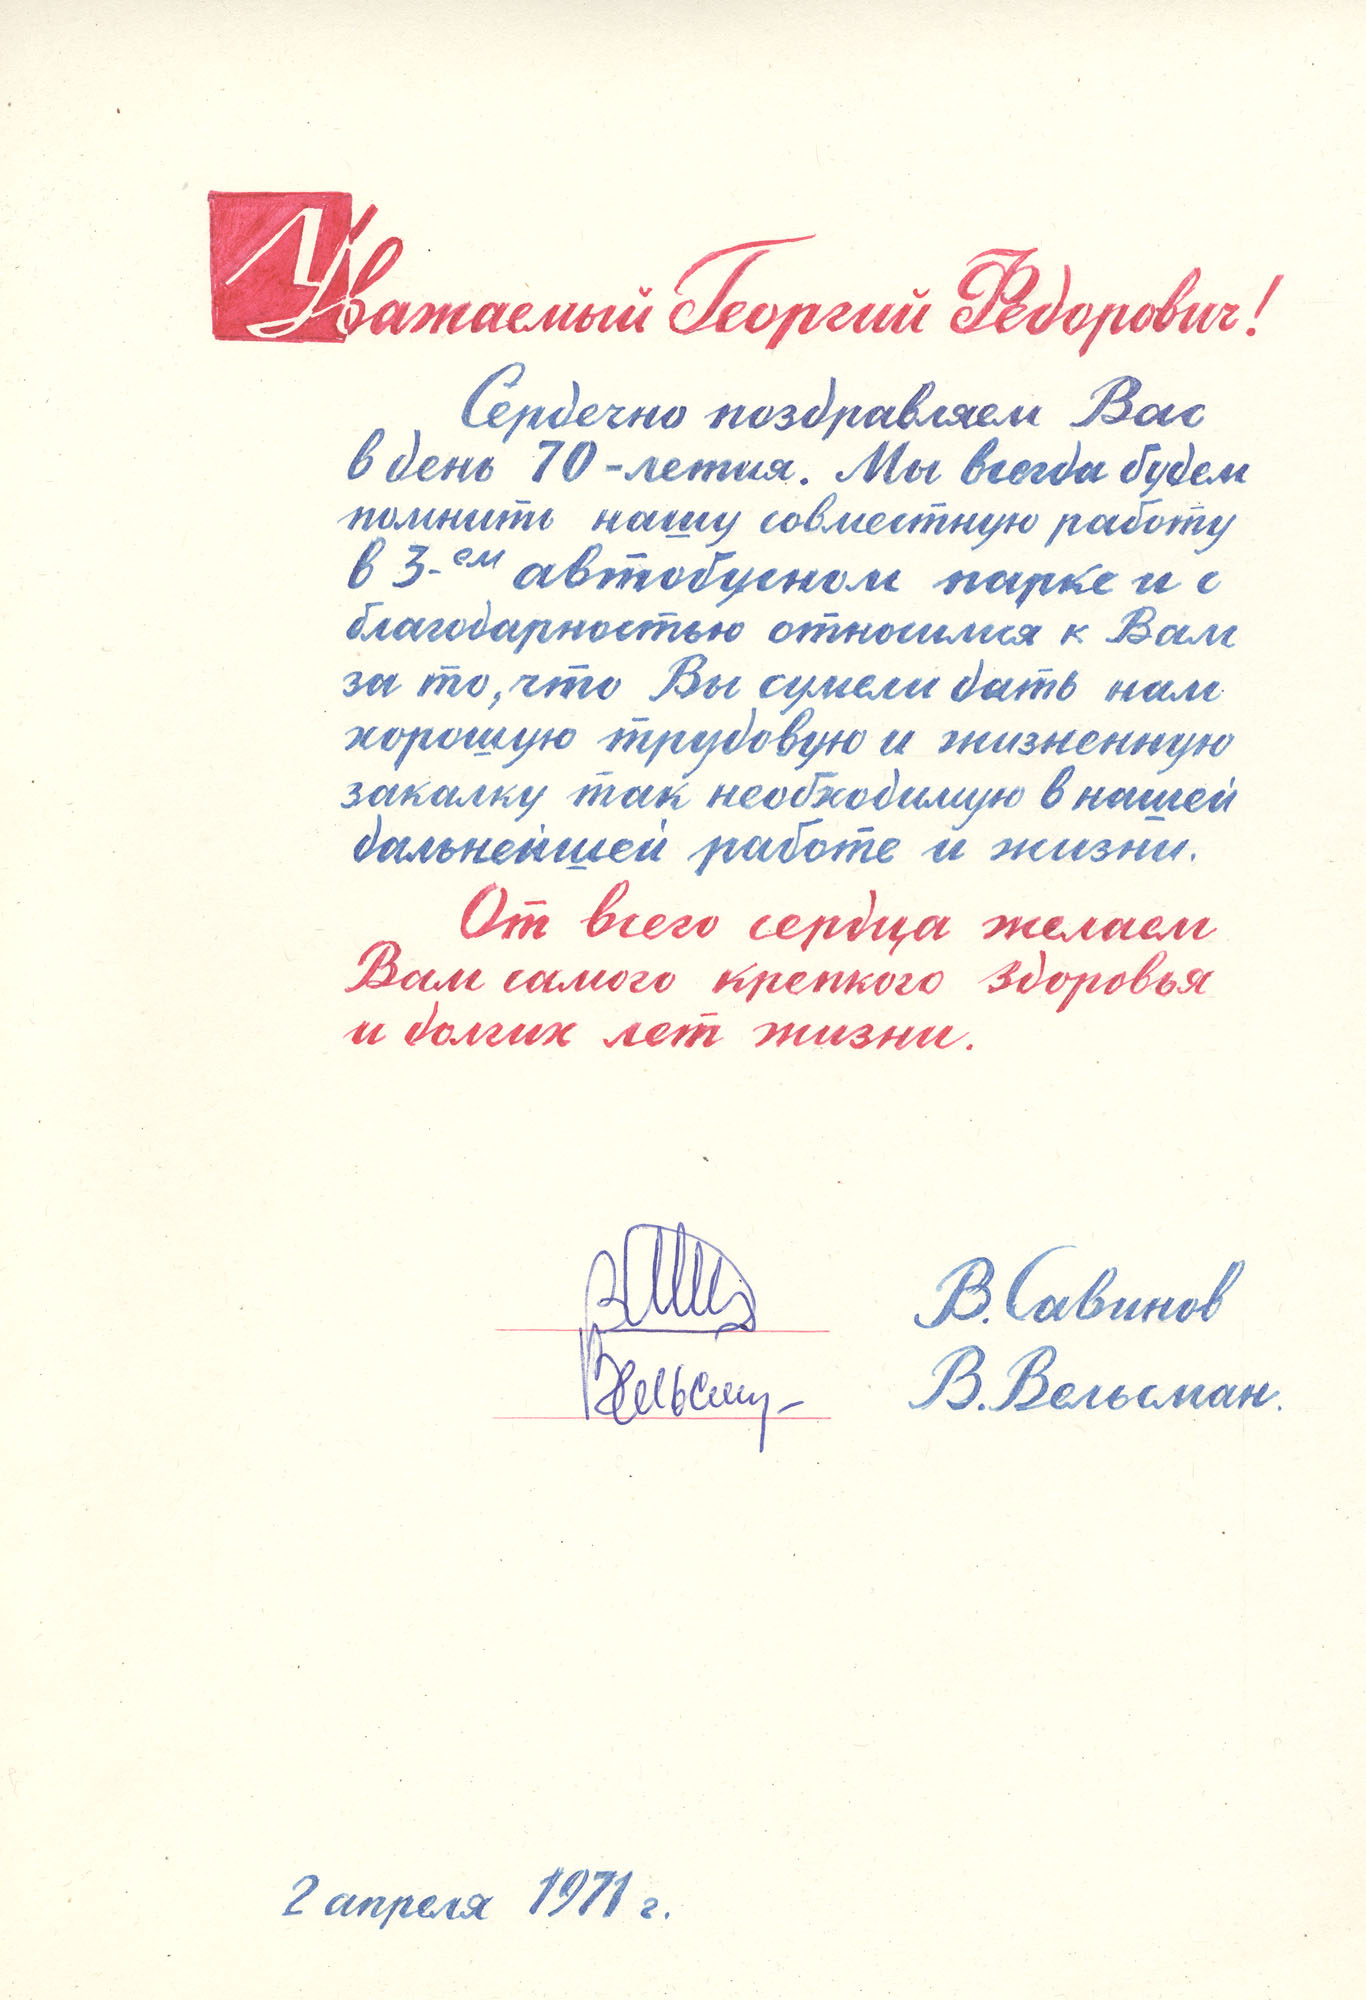 Уважаемый Георгий Федорович!
Сердечно поздравляем Вас
в день 70-летия. Мы всегда будем
помнить нашу совместную работу
в 3-ем автобусном парке и с
благодарностью относимся к Вам
за то, что Вы сумели дать нам
хорошую трудовую и жизненную
закалку так необходимую в нашей
дальнейшей работе и жизни.
От всего сердца желаем
Вам самого крепкого здоровья
и долгих лет жизни.
В. Савинов
В. Вельсман.
2 апреля 1971 г.